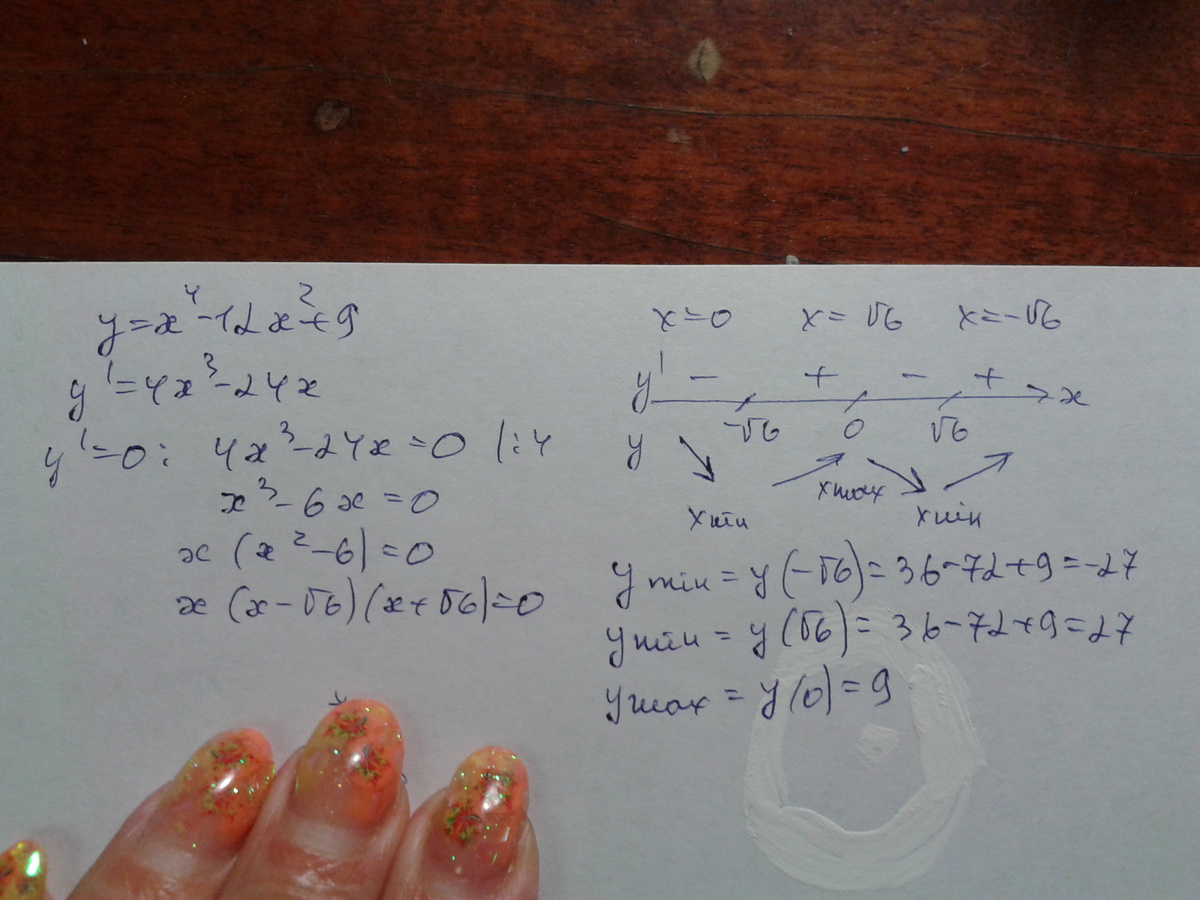 y=x⁴-12x²+9
y'=4x³-24x
y'=0: 4x³-24x=0 |:4
x³-6x=0
x(x²-6)=0
x(x-√6)(x+√6)=0
x=0 x=√6 x=-√6
y' - + - + x
-√6 0 √6
y
xmax
xmin xmin
ymin = y(-√6)=36-72+9=-27
ymin = y(√6)=36-72+9=27
ymax = y(0)=9